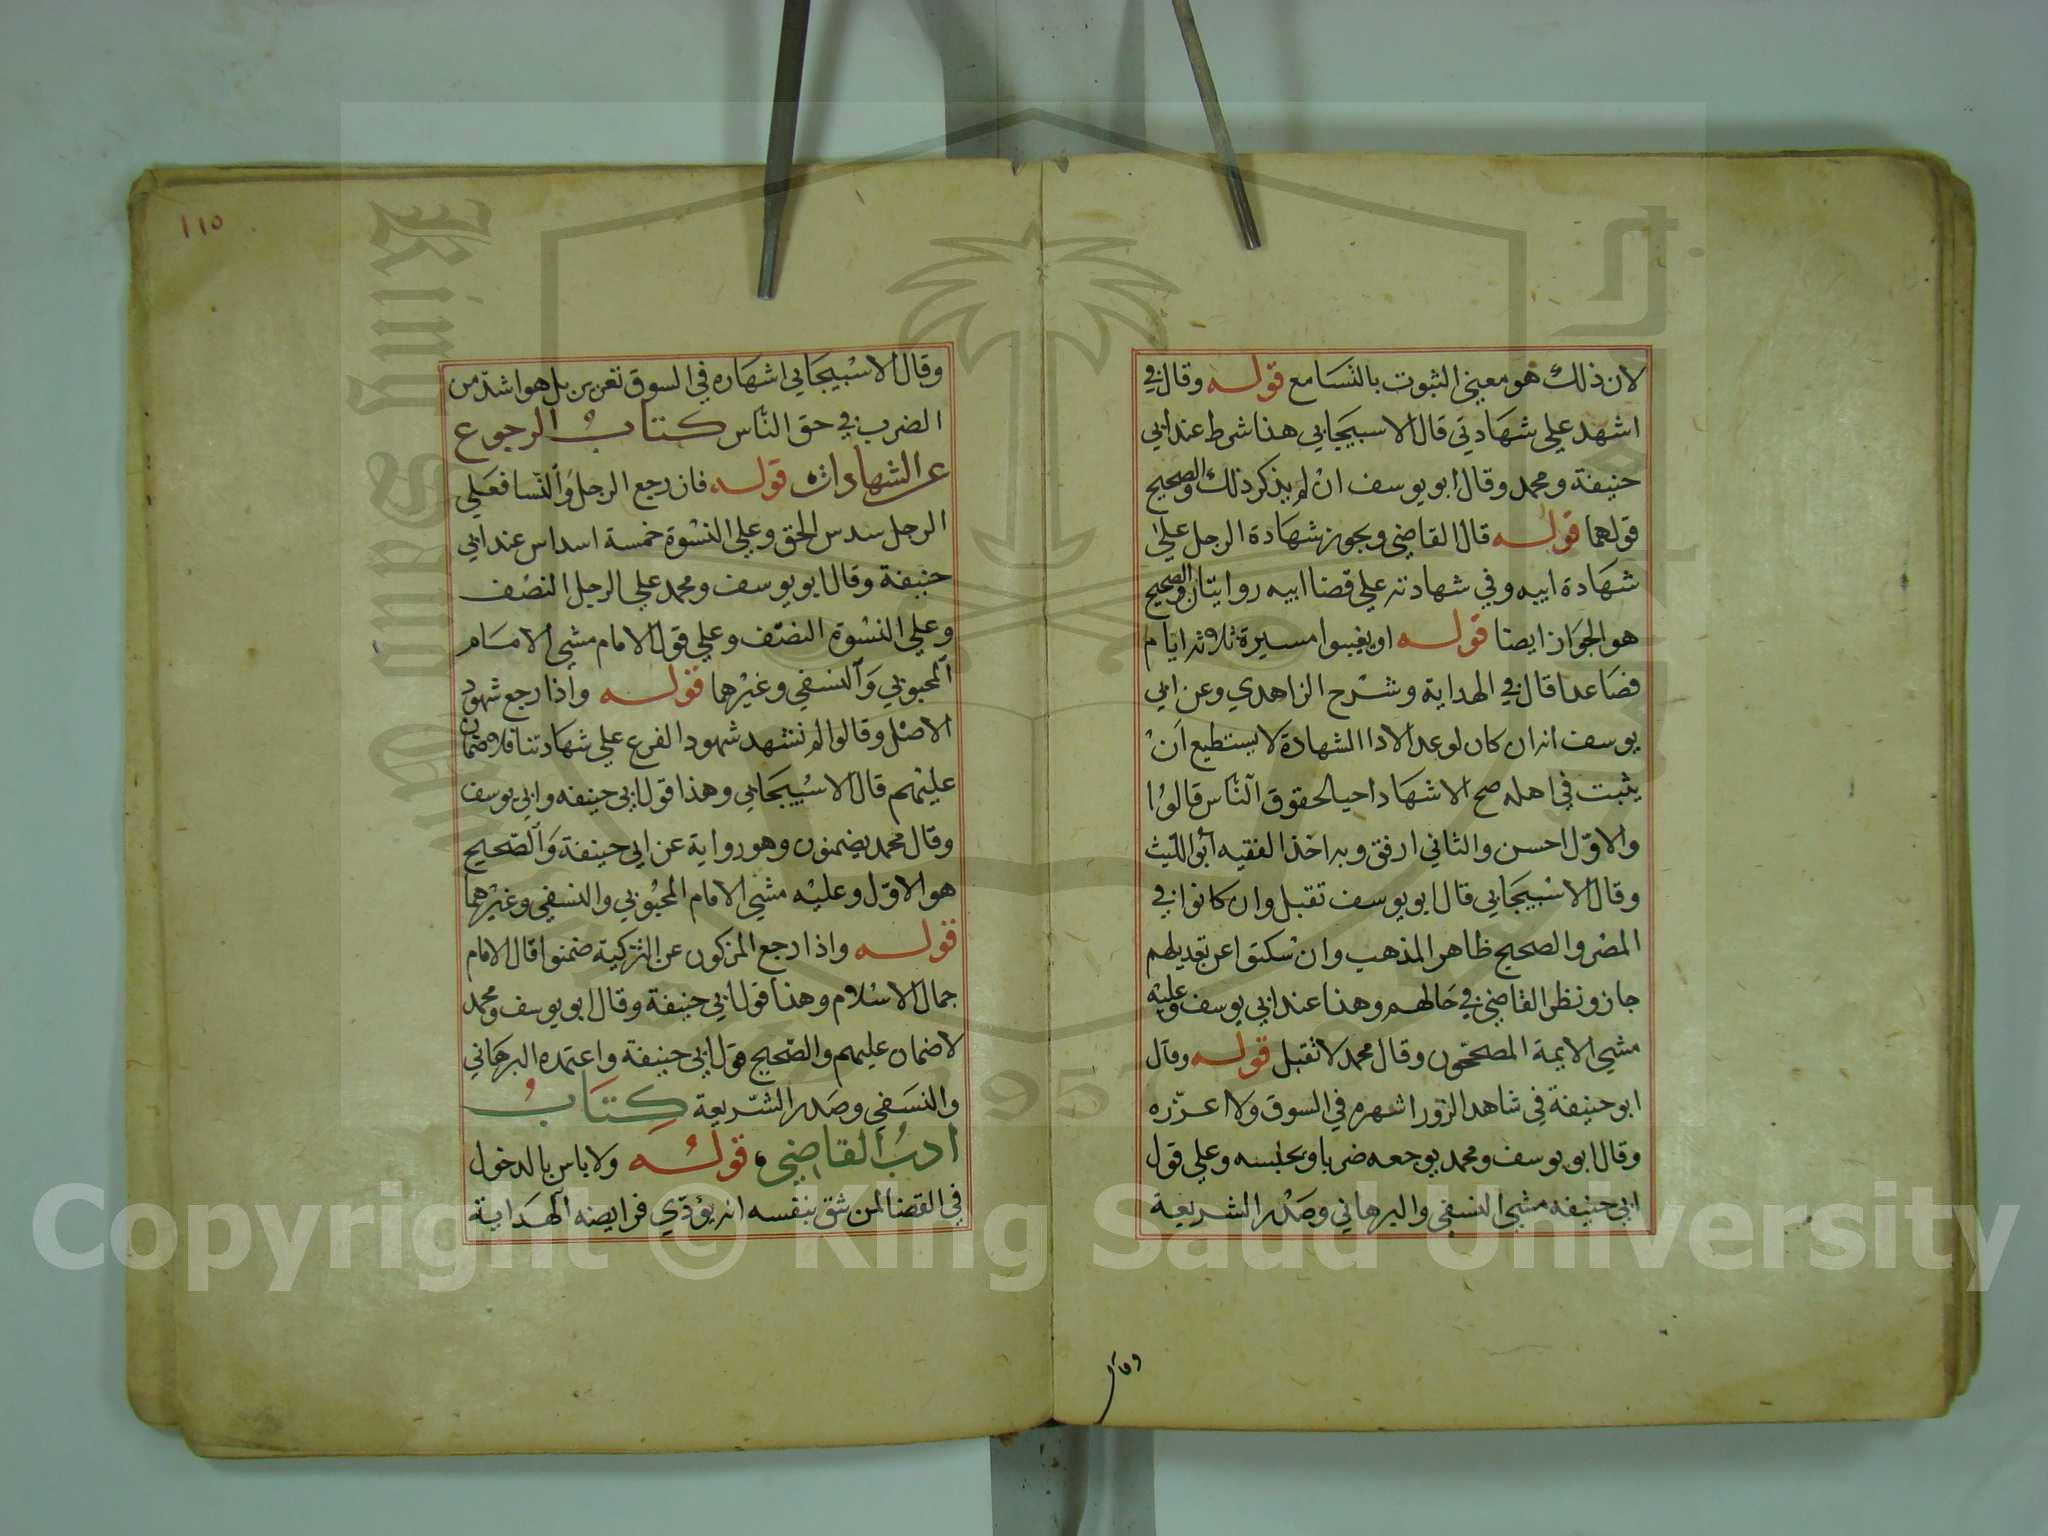 لان ذلك هو معني الثبوت بالتسامع قوله وقال في
اشهد علي شهادتي قال الاسبيجابي هذا شرط عند ابي
حنيفة ومحمد وقال ابو يوسف ان لم يذكر ذلك والصحيح
قولهما قوله قال القاضي ويجوز شهادة الرجل علي
شهادة ابيه وفي شهادته علي قضا ابيه روايتان والصحيح
هو الجواز ايضا قوله او يغيبوا مسيرة ثلاثة ايام
فصاعدا قال في الهداية وشرح الزاهدي وعن ابي
يوسف انه ان كان لو عد الادا الشهادة لا يستطيع ان
يثبت في اهله صح الاشهاد احيا لحقوق الناس قالوا
والاول احسن والثاني ارفق وبه اخذ الفقيه ابو الليث
وقال الاسبيجابي قال ابو يوسف تقبل وان كانوا في
المصر والصحيح ظاهر المذهب وان سكتوا عن تعديلهم
جاز ونظر القاضي في حالهم وهذا عند ابي يوسف وعليه
مشي الايمة المصححون وقال محمد لا تقبل قوله وقال
ابو حنيفة في شاهد الزور اشهره في السوق ولا اعزره
وقال ابو يوسف ومحمد يوجعه ضربا ويحبسه وعلي قول
ابي حنيفه مشي النسفي والبرهاني وصدر الشريعة
وقال
١١٥
وقال الاسبيجابي اشهاره في السوق تعزير بل هو اشد من
الضرب في حق الناس كتاب الرجوع
عن الشهادات قوله فان رجع الرجل والنسا فعلي
الرجل سدس الحق وعلي النسوة خمسة اسداس عند ابي
حنيفة وقال ابو يوسف ومحمد علي الرجل النصف
وعلي النسوة النصف وعلي قول الامام مشي الامام
المحبوبي والنسفي وغيرهما قوله واذا رجع شهود
الاصل وقالوا لم نشهد شهود الفرع علي شهادتنا فلا ضمان
عليهم قال الاسبيجابي وهذا قول ابي حنيفه وابي يوسف
وقال محمد يضمنون وهو رواية عن ابي حنيفة والصحيح
هو الاول وعليه مشي الامام المحبوبي والنسفي وغيرهما
قوله واذا رجع المزكون عن التزكية ضمنوا قال الامام
جمال الاسلام وهذا قول ابي حنيفة وقال ابو يوسف ومحمد
لا ضمان عليهم والصحيح قول ابي حنيفة واعتمده البرهاني
والنسفي وصدر الشريعة كتاب
ادب القاضي قوله ولا باس بالدخول
في القضا لمن يثق بنفسه انه يؤدي فرايضه الهداية
Copyright © King Saud University
King Saud University
1957